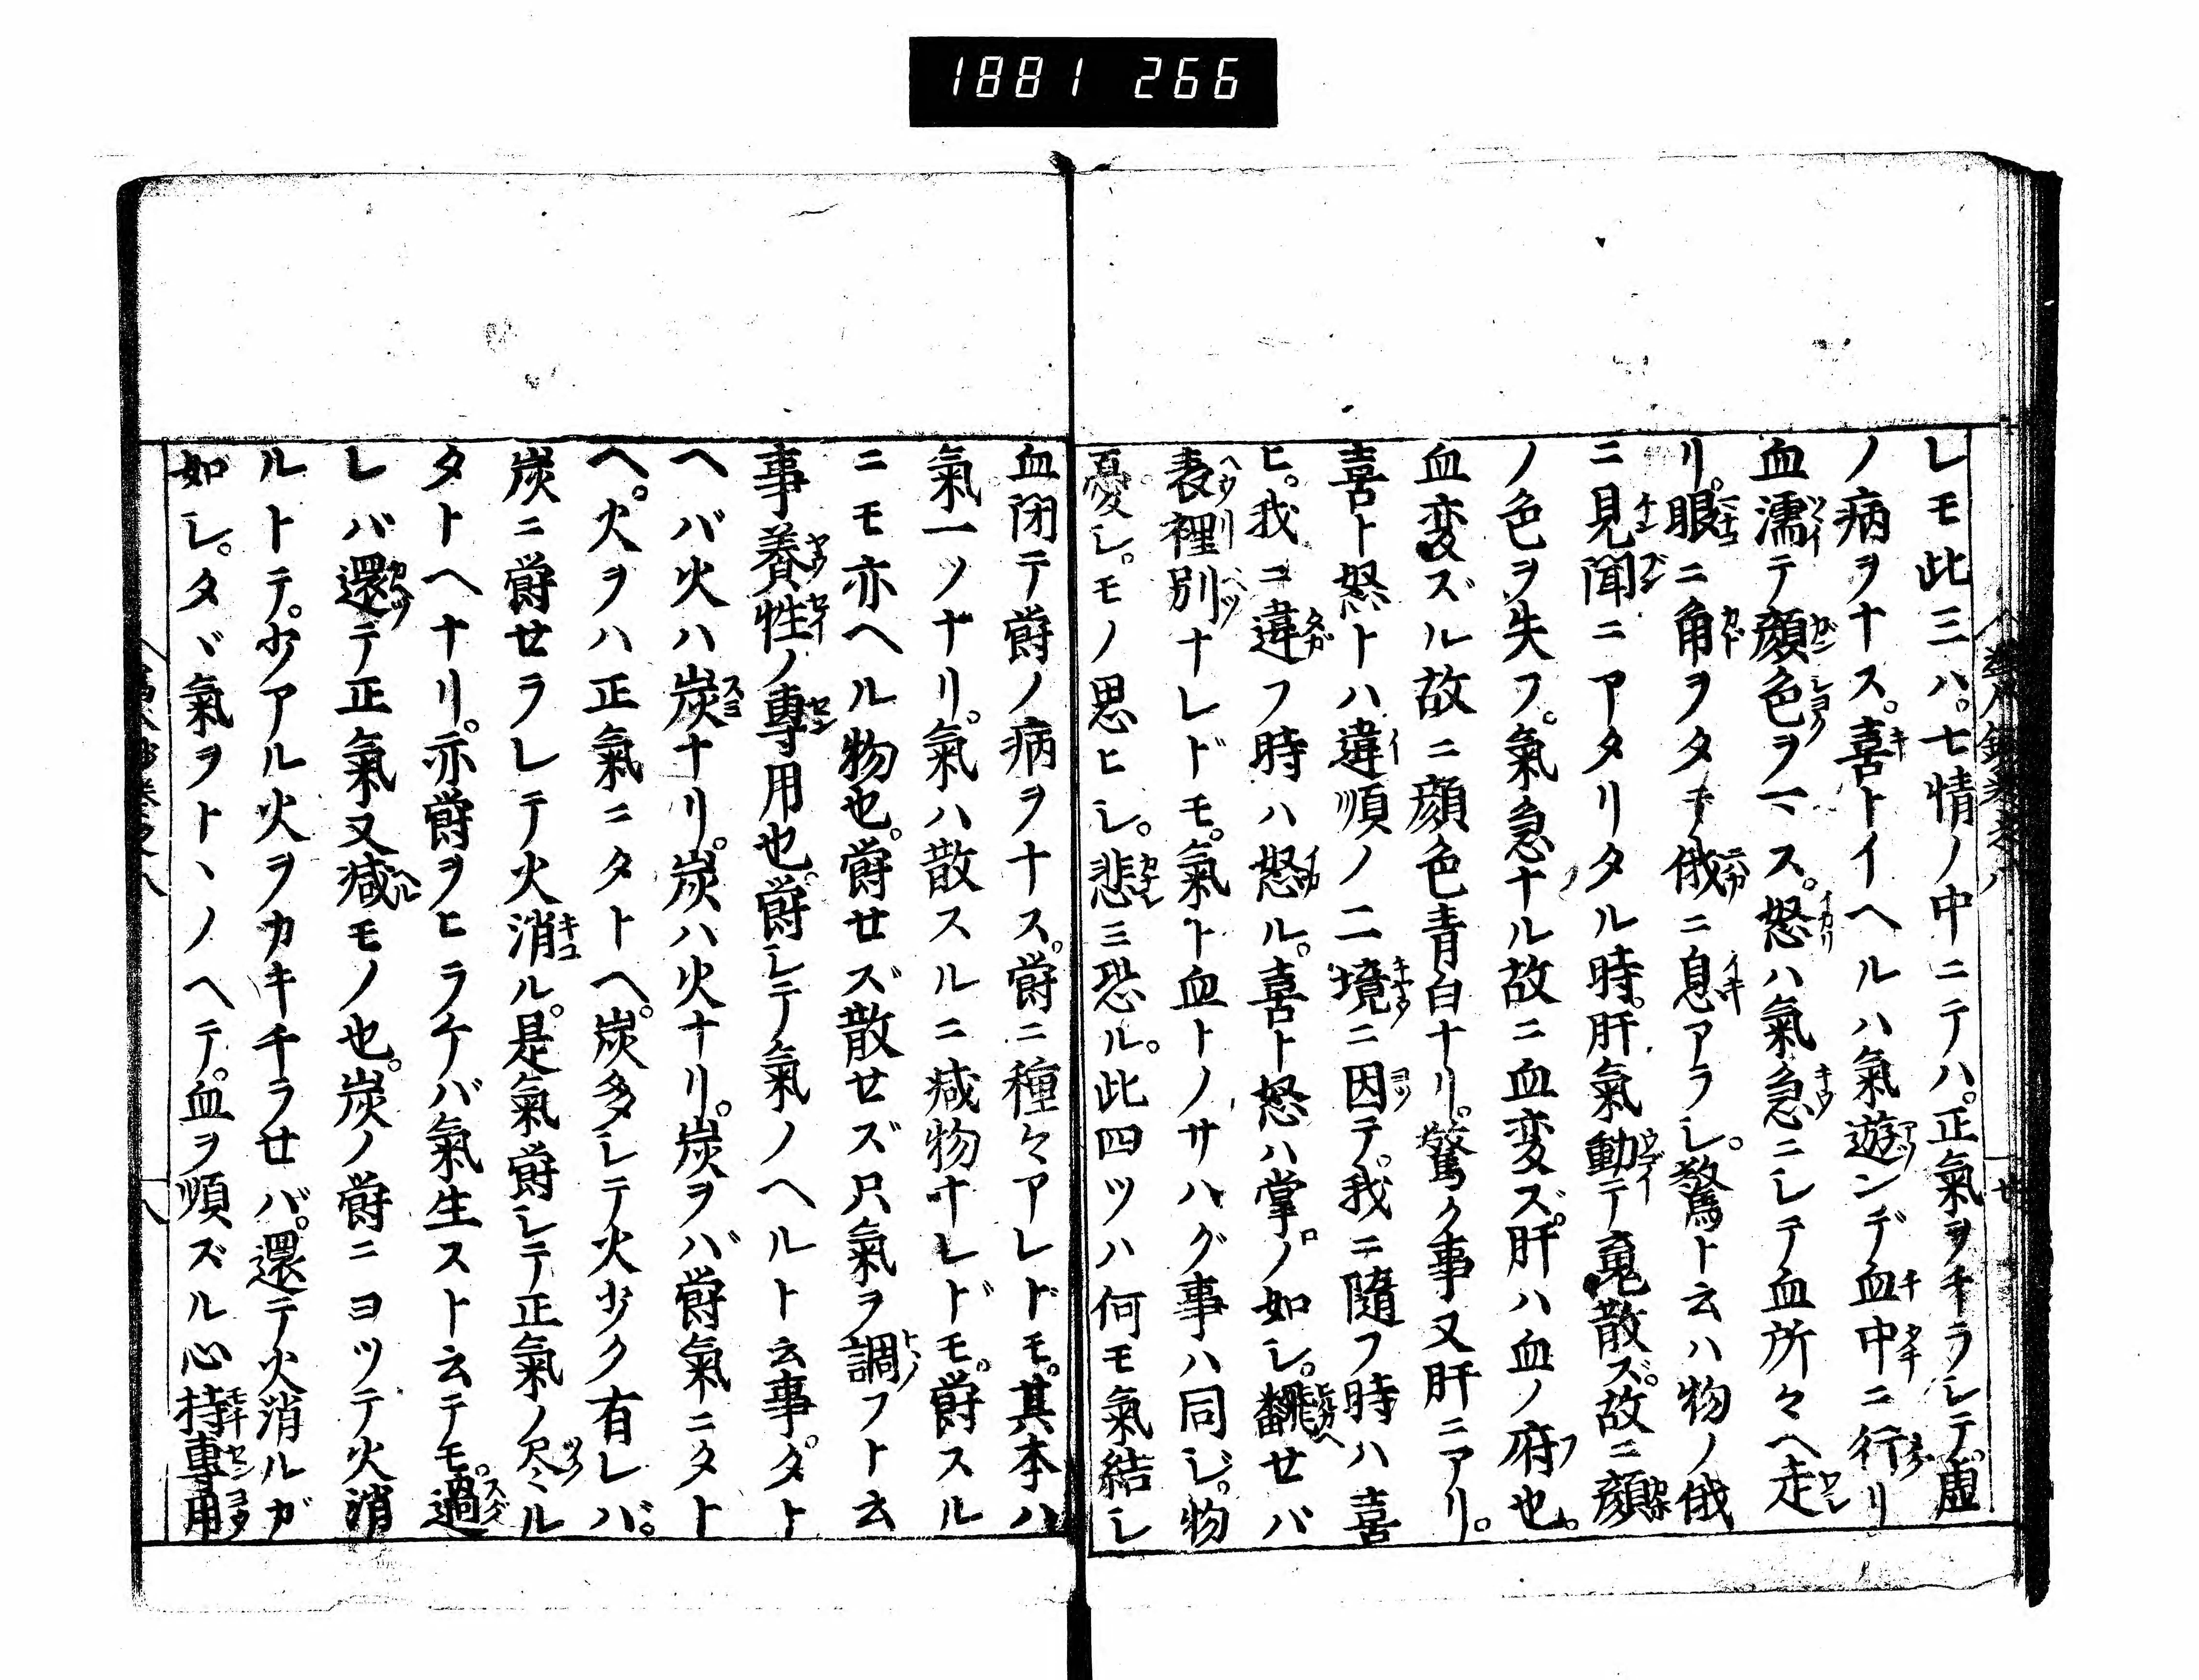 1881 266
レモ此三ハ。七情ノ中ニテハ。正氣ヲチラシテ。虚
ノ病ヲナス。喜トイヘルハ氣遊ンデ血中ニ行リ
血濡テ顔色ヲマス。怒ハ氣急ニシテ血所々ヘ走
リ。眼ニ角ヲタテ俄ニ息アラシ。驚ト云ハ物ノ俄
ニ見聞ニアタリタル時。肝氣動テ䰟散ズ。故ニ顔
ノ色ヲ失フ。氣急ナル故ニ血変ズ。肝ハ血ノ府也。
血変ズル故ニ顔色青白ナリ。驚ク事又肝ニアリ。
喜ト怒トハ違順ノ二境ニ因テ。我ニ隨フ時ハ喜
ヒ。我ニ違フ時ハ怒ル。喜ト怒ハ掌ノ如シ。翻セバ
表裡別ナレドモ。氣ト血トノサハグ事ハ同ジ。物
憂シ。モノ思ヒシ。悲ミ恐ル。此四ツハ何モ氣結シ
血閉テ欝ノ病ヲナス。欝ニ種々アレドモ。其本ハ
氣一ツナリ。氣ハ散スルニ减物ナレドモ。欝スル
ニモ亦ヘル物也。欝セズ散セズ只氣ヲ調フト云
事養性ノ專用也。欝シテ氣ノヘルト云事。タト
ヘバ火ハ炭ナリ。炭ハ火ナリ。炭ヲバ欝氣ニタト
ヘ。火ヲハ正氣ニタトヘ。炭多シテ火少ク有レバ。
炭ニ欝セラレテ火消ル。是氣欝シテ正氣ノ尽ル
タトヘナリ。亦欝ヲヒラケバ氣生スト云テモ。過
レバ還テ正氣又减モノ也。炭ノ欝ニヨツテ火消
ルトテ。少アル火ヲカキチラセバ。還テ火消ルガ
如シ。タヾ氣ヲトヽノヘテ。血ヲ順ズル心持專用